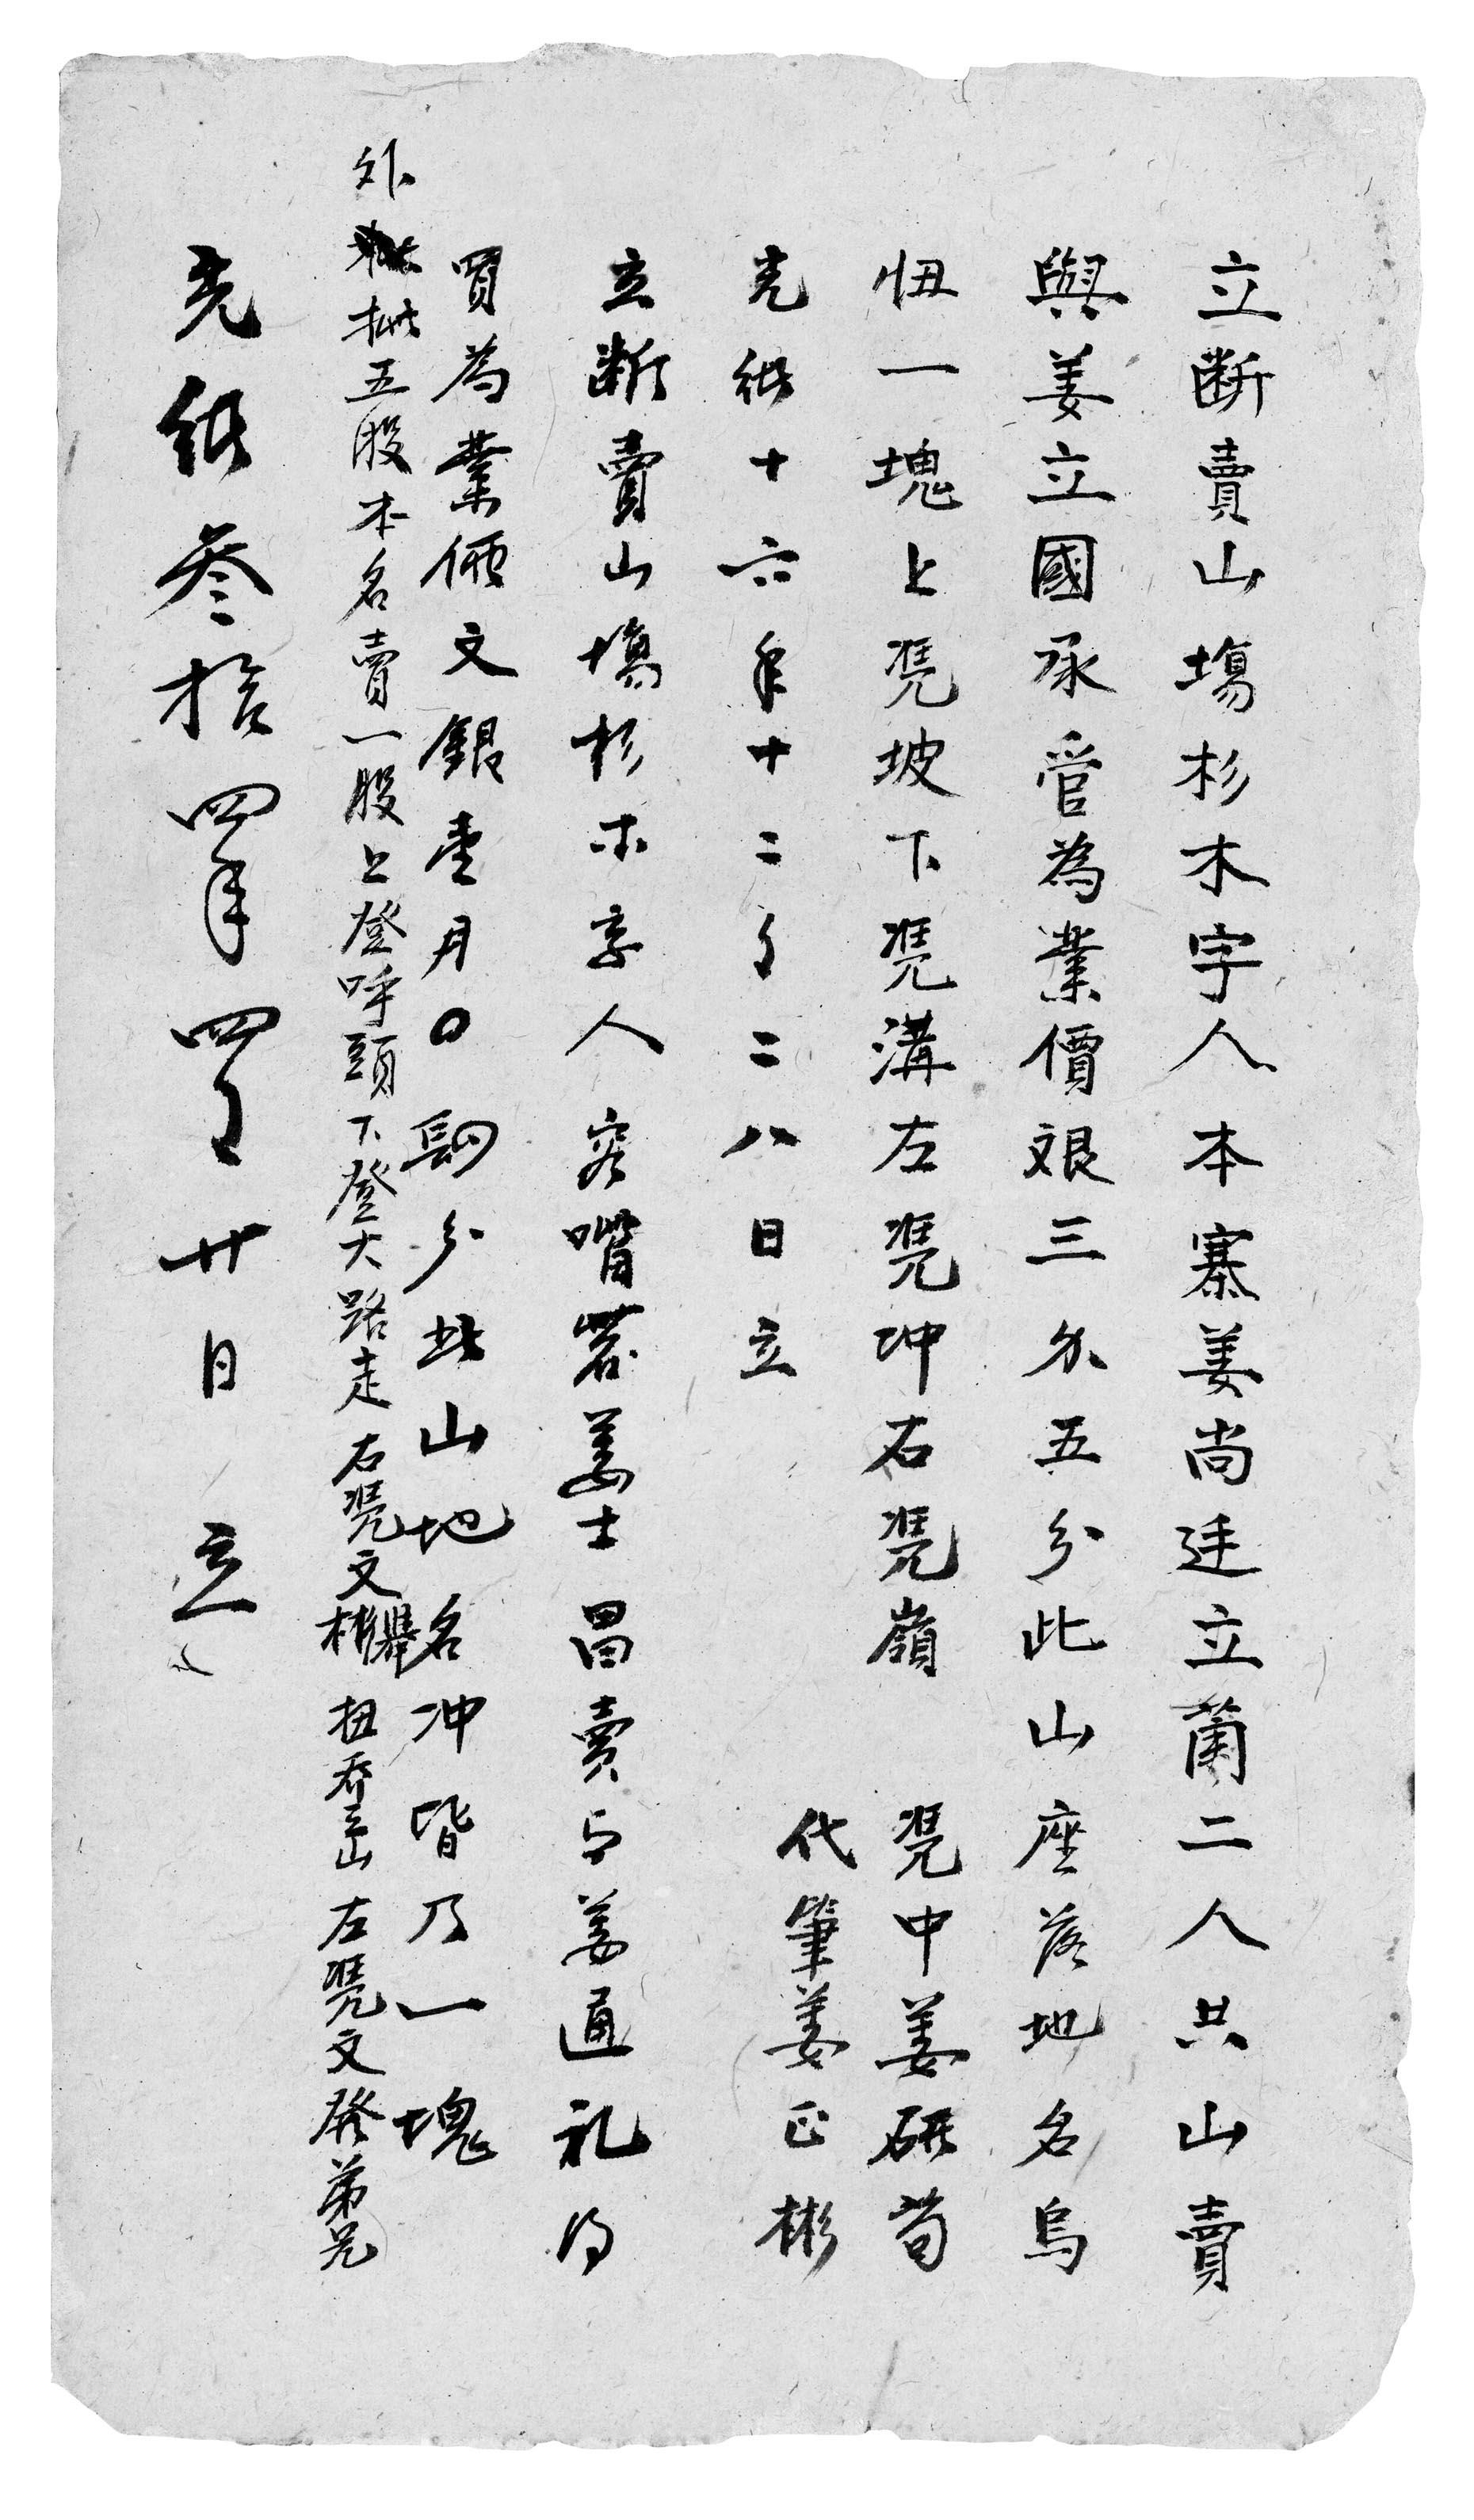 立断賣山塲杉木字人本寨姜尚廷立蘭二人共山賣
與姜立國承管為業價艰三分五分此山座落地名烏
忸一塊上凭坡下凭溝左凭冲右凭嶺 凭中姜研荀
光緒十六年十二月二八日立 代筆姜正彬
立断賣山塲杉木字人客嘴砦姜士昌賣与姜通礼得
買為業価文銀壹月〇四分此山地名冲皆乃一塊
外批五股本名賣一股上登呼頭下登大路走右凭文彬舉扭喬山左凭文發弟兄
光緒叁拾四年四月廿日立